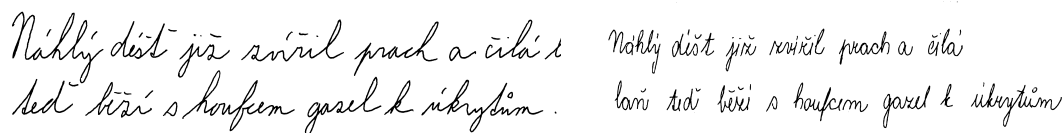 Náhlý déšť již zvířil prach a čilá
teď běží s houfcem gazel k úkrytům.
Náhlý déšť již zvířil prach a čilá
laň teď běží s houfcem gazel k úkrytům